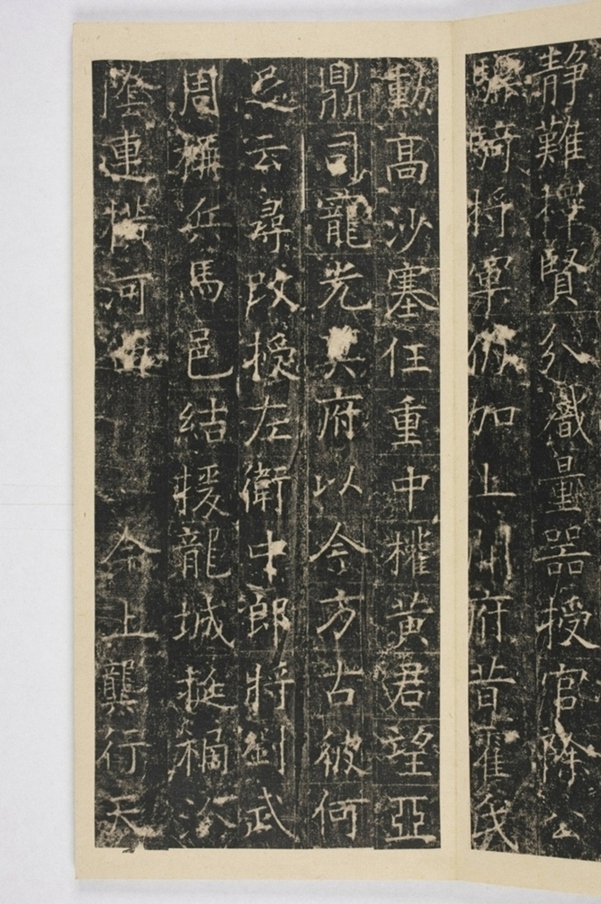 静難擇賢分職量器授官除公
驃騎將軍仍加上開府昔霍氏
勳高沙塞任重中權黃君望亞
鼎司寵光其府以今方古彼何
忌云尋改授左衛中郎將劉武
周稱兵馬邑結援龍城挺禍汾
陰連河曲今上龔行天